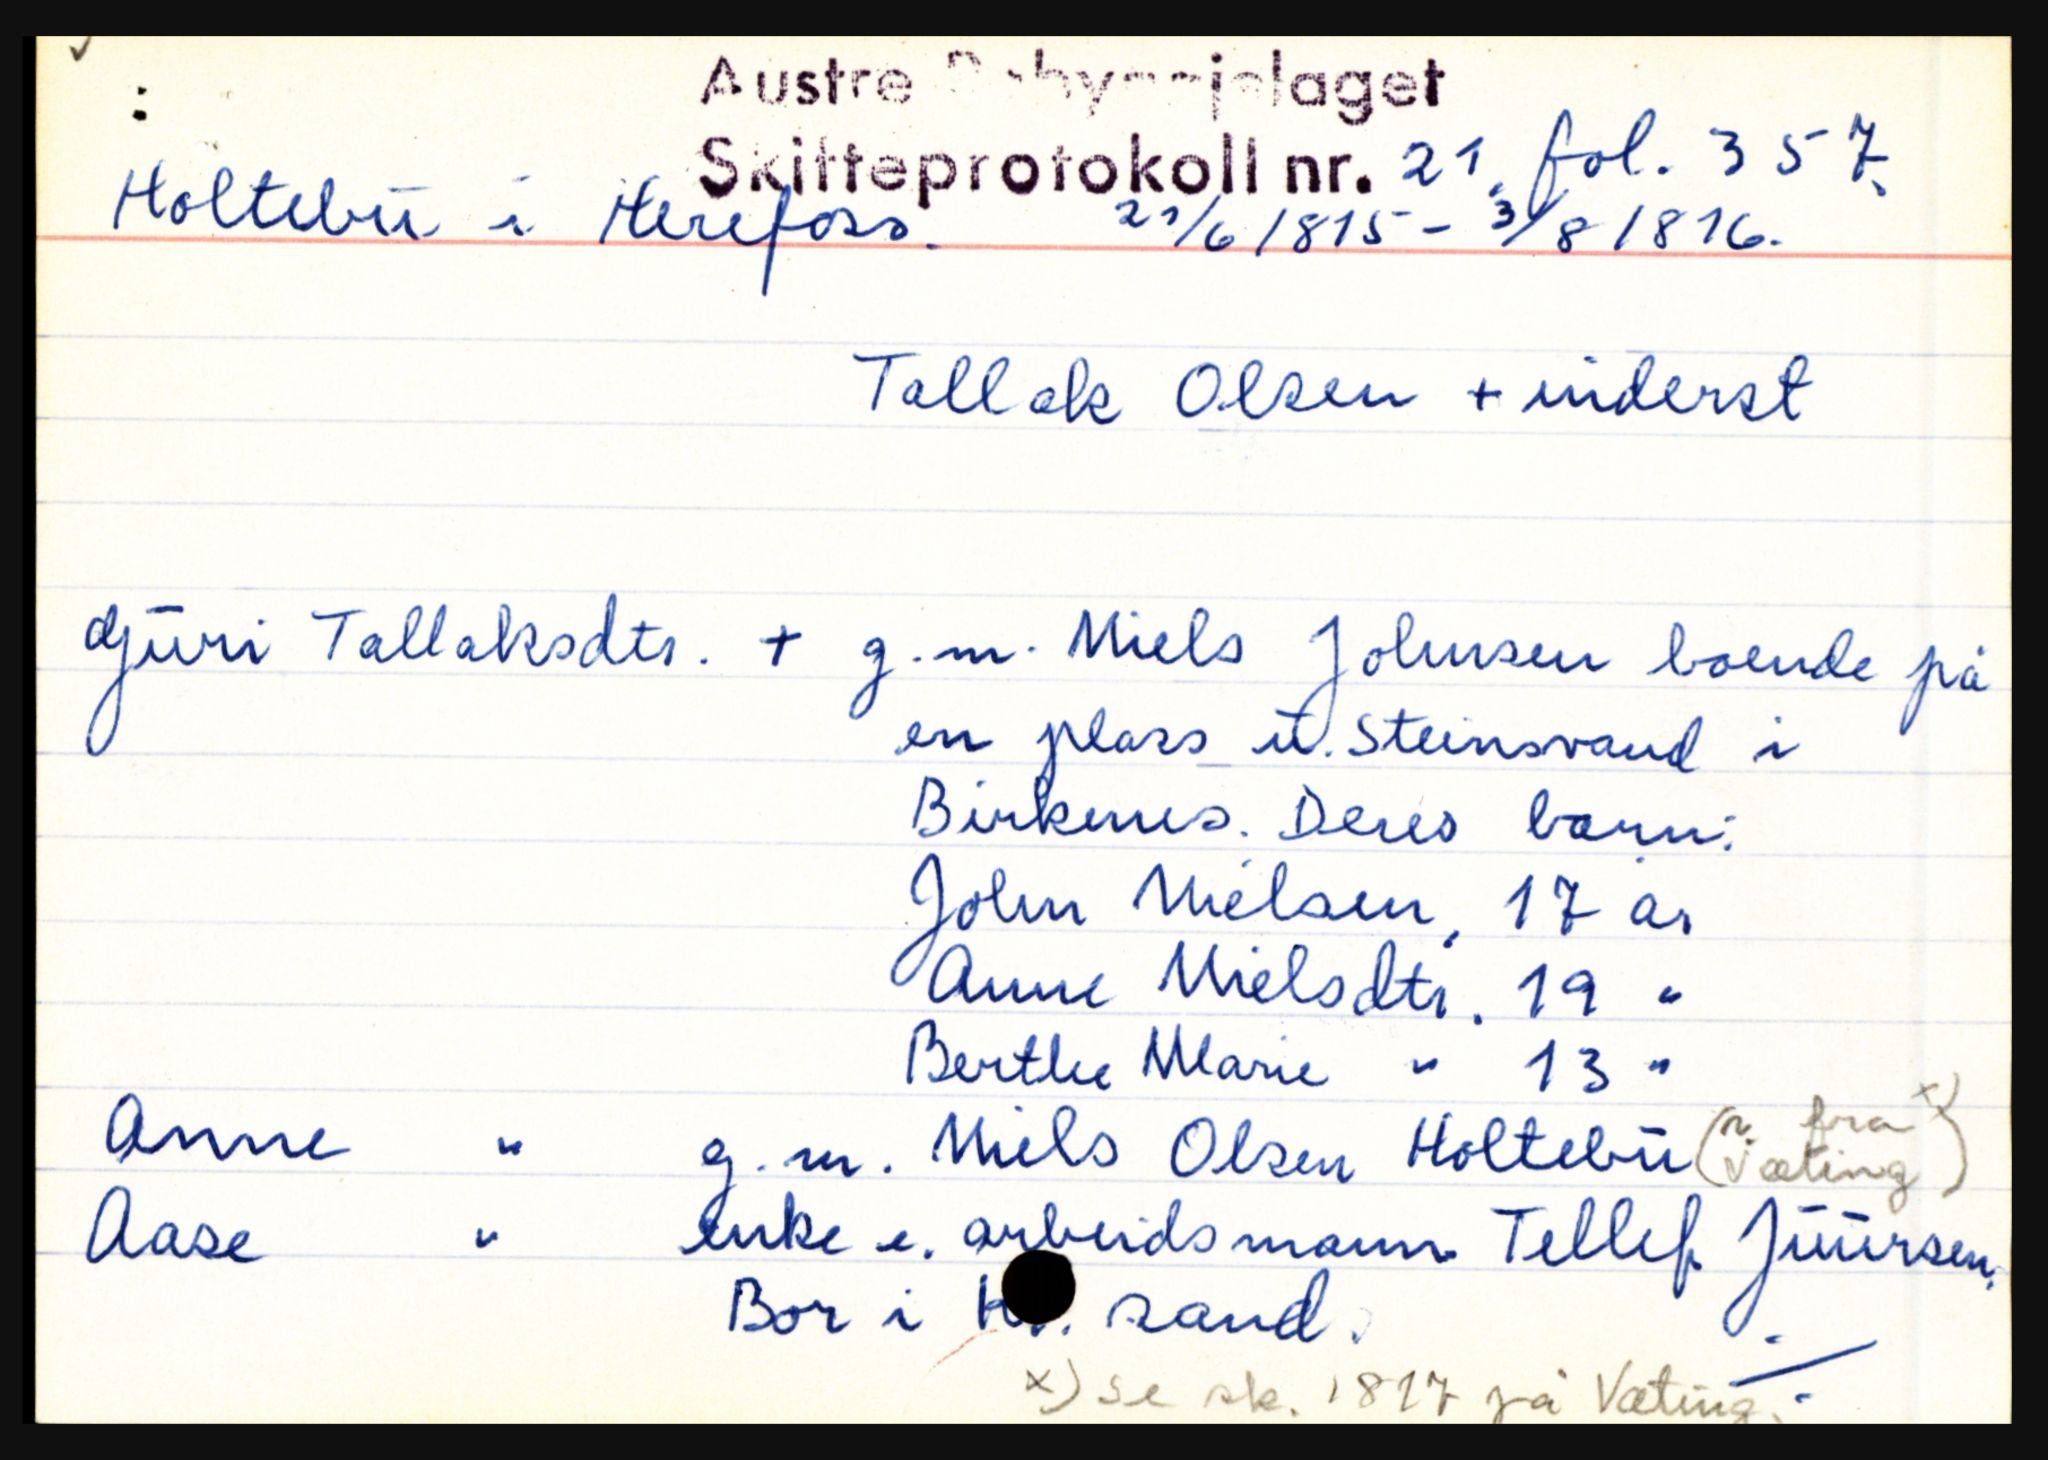 Austre Råbyggjelaget
Skifteprotokoll nr. 21, fol. 357.
Holtebu i Herefoss. 21/6 1815 - 3/8 1816.
Tallak Olsen + inderst
Gjuri Tallaksdtr. + g.m. Niels Johnsen boende på
en plass u. Steinsvand i
Birkenes. Deres barn:
John Nielsen, 17 år
Anne Nielsdtr. 19 "
Berthe Marie " 13 "
Anne " g.m. Niels Olsen Holtebu (n. fra x)
Væting)
Aase " enke e. arbeidsmann Tellef Juursen.
Bor i Kr. sand.
x) se sk. 1817 på Væting.